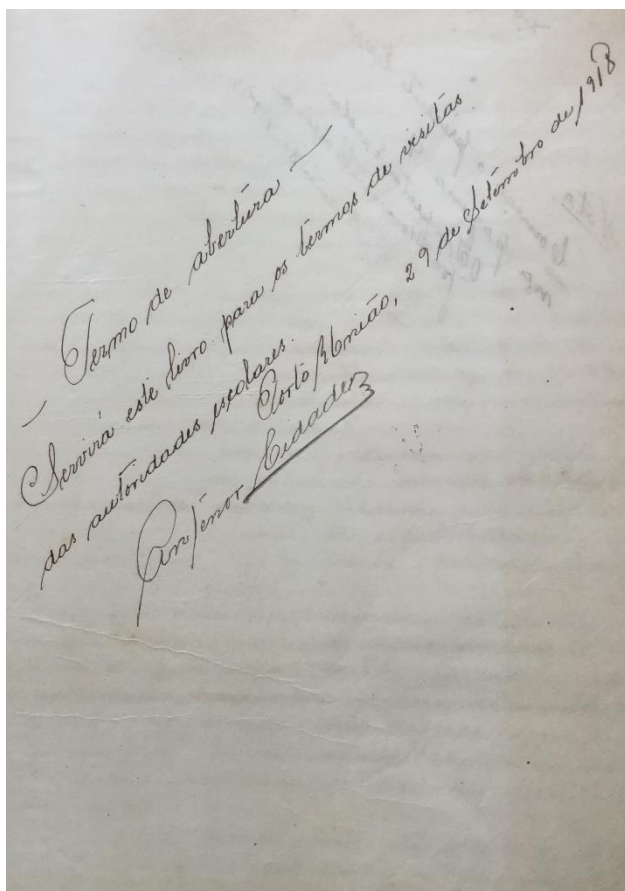 — Termo de abertura —
Servirá este livro para os termos de visitas
das autoridades escolares.
Porto União, 29 de Setembro de 1918
Antenor Cidade